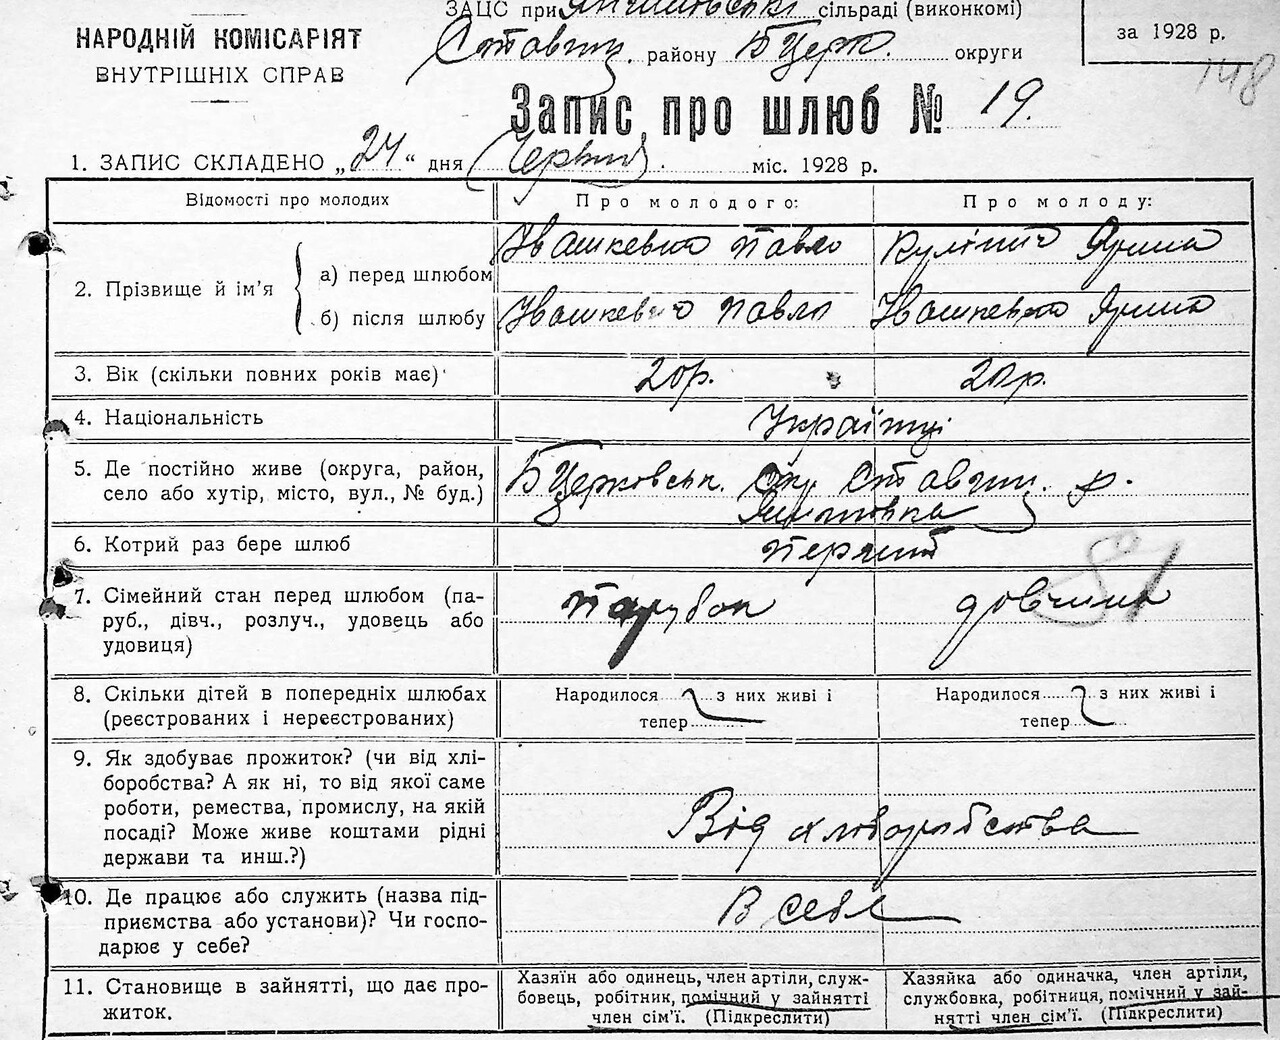 ЗАЦС при сільраді (виконкомі)
НАРОДНІЙ КОМІСАРІЯТ
ВНУТРІШНІХ СПРАВ
Ставищ. району Б Церк. округи
за 1928 р.
148
Запис про шлюб № 19.
1. ЗАПИС СКЛАДЕНО „24“ дня Червня міс. 1928 р.
Відомості про молодих
Про молодого:
Про молоду:
2. Прізвище й ім'я
а) перед шлюбом
Івашкевич Павло
Кулінич Ярина
б) після шлюбу
Івашкевич Павло
Івашкевич Ярина
3. Вік (скільки повних років має)
20р.
20р.
4. Національність
Українці
5. Де постійно живе (округа, район,
село або хутір, місто, вул., № буд.)
Б Церковськ. окр. Ставищ. р.
6. Котрий раз бере шлюб
перший
7. Сімейний стан перед шлюбом (па-
руб., дівч., розлуч., удовець або
удовиця)
парубок
дівчина
81
8. Скільки дітей в попередніх шлюбах
(реєстрованих і нереєстрованих)
Народилося з них живі і
тепер
Народилося з них живі і
тепер
9. Як здобуває прожиток? (чи від хлі-
боробства? А як ні, то від якої саме
роботи, ремества, промислу, на якій
посаді? Може живе коштами рідні
держави та инш.?)
Від хліборобства
10. Де працює або служить (назва під-
приємства або установи)? Чи госпо-
дарює у себе?
В себе
11. Становище в зайнятті, що дає про-
житок.
Хазяїн або одинець, член артіли, служ-
бовець, робітник, помічний у зайнятті
член сім'ї. (Підкреслити)
Хазяйка або одиначка, член артіли,
службовка, робітниця, помічний у зай-
нятті член сім'ї. (Підкреслити)